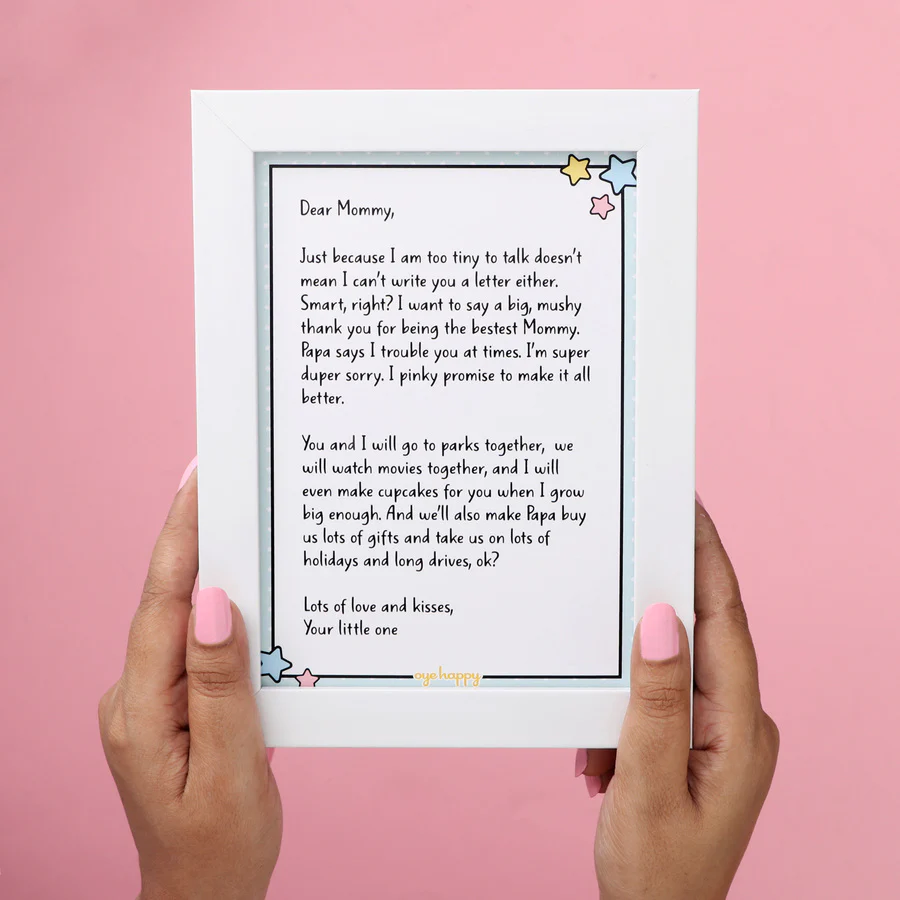 Dear Mommy,
Just because I am too tiny to talk doesn't
mean I can't write you a letter either.
Smart, right? I want to say a big, mushy
thank you for being the bestest Mommy.
Papa says I trouble you at times. I'm super
duper sorry. I pinky promise to make it all
better.
You and I will go to parks together, we
will watch movies together, and I will
even make cupcakes for you when I grow
big enough. And we'll also make Papa buy
us lots of gifts and take us on lots of
holidays and long drives, ok?
Lots of love and kisses,
Your little one
oye happy